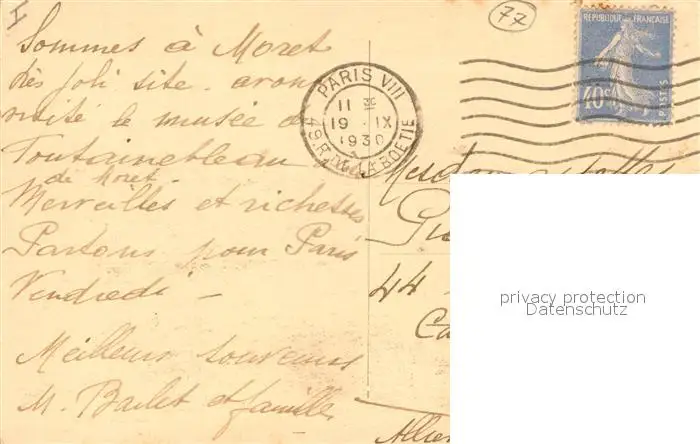 77
REPUBLIQUE FRANÇAISE
40c
POSTES
PARIS VIII
11 30
19 IX
1930
49 R. LA BOETIE
Sommes à Moret
très joli site. avons
visité le musée de
Fontainebleau
de Moret
Merveilles et richesses
Partons pour Paris
Vendredi —
Meilleurs souvenirs
M. et famille
44
Allier
privacy protection
Datenschutz